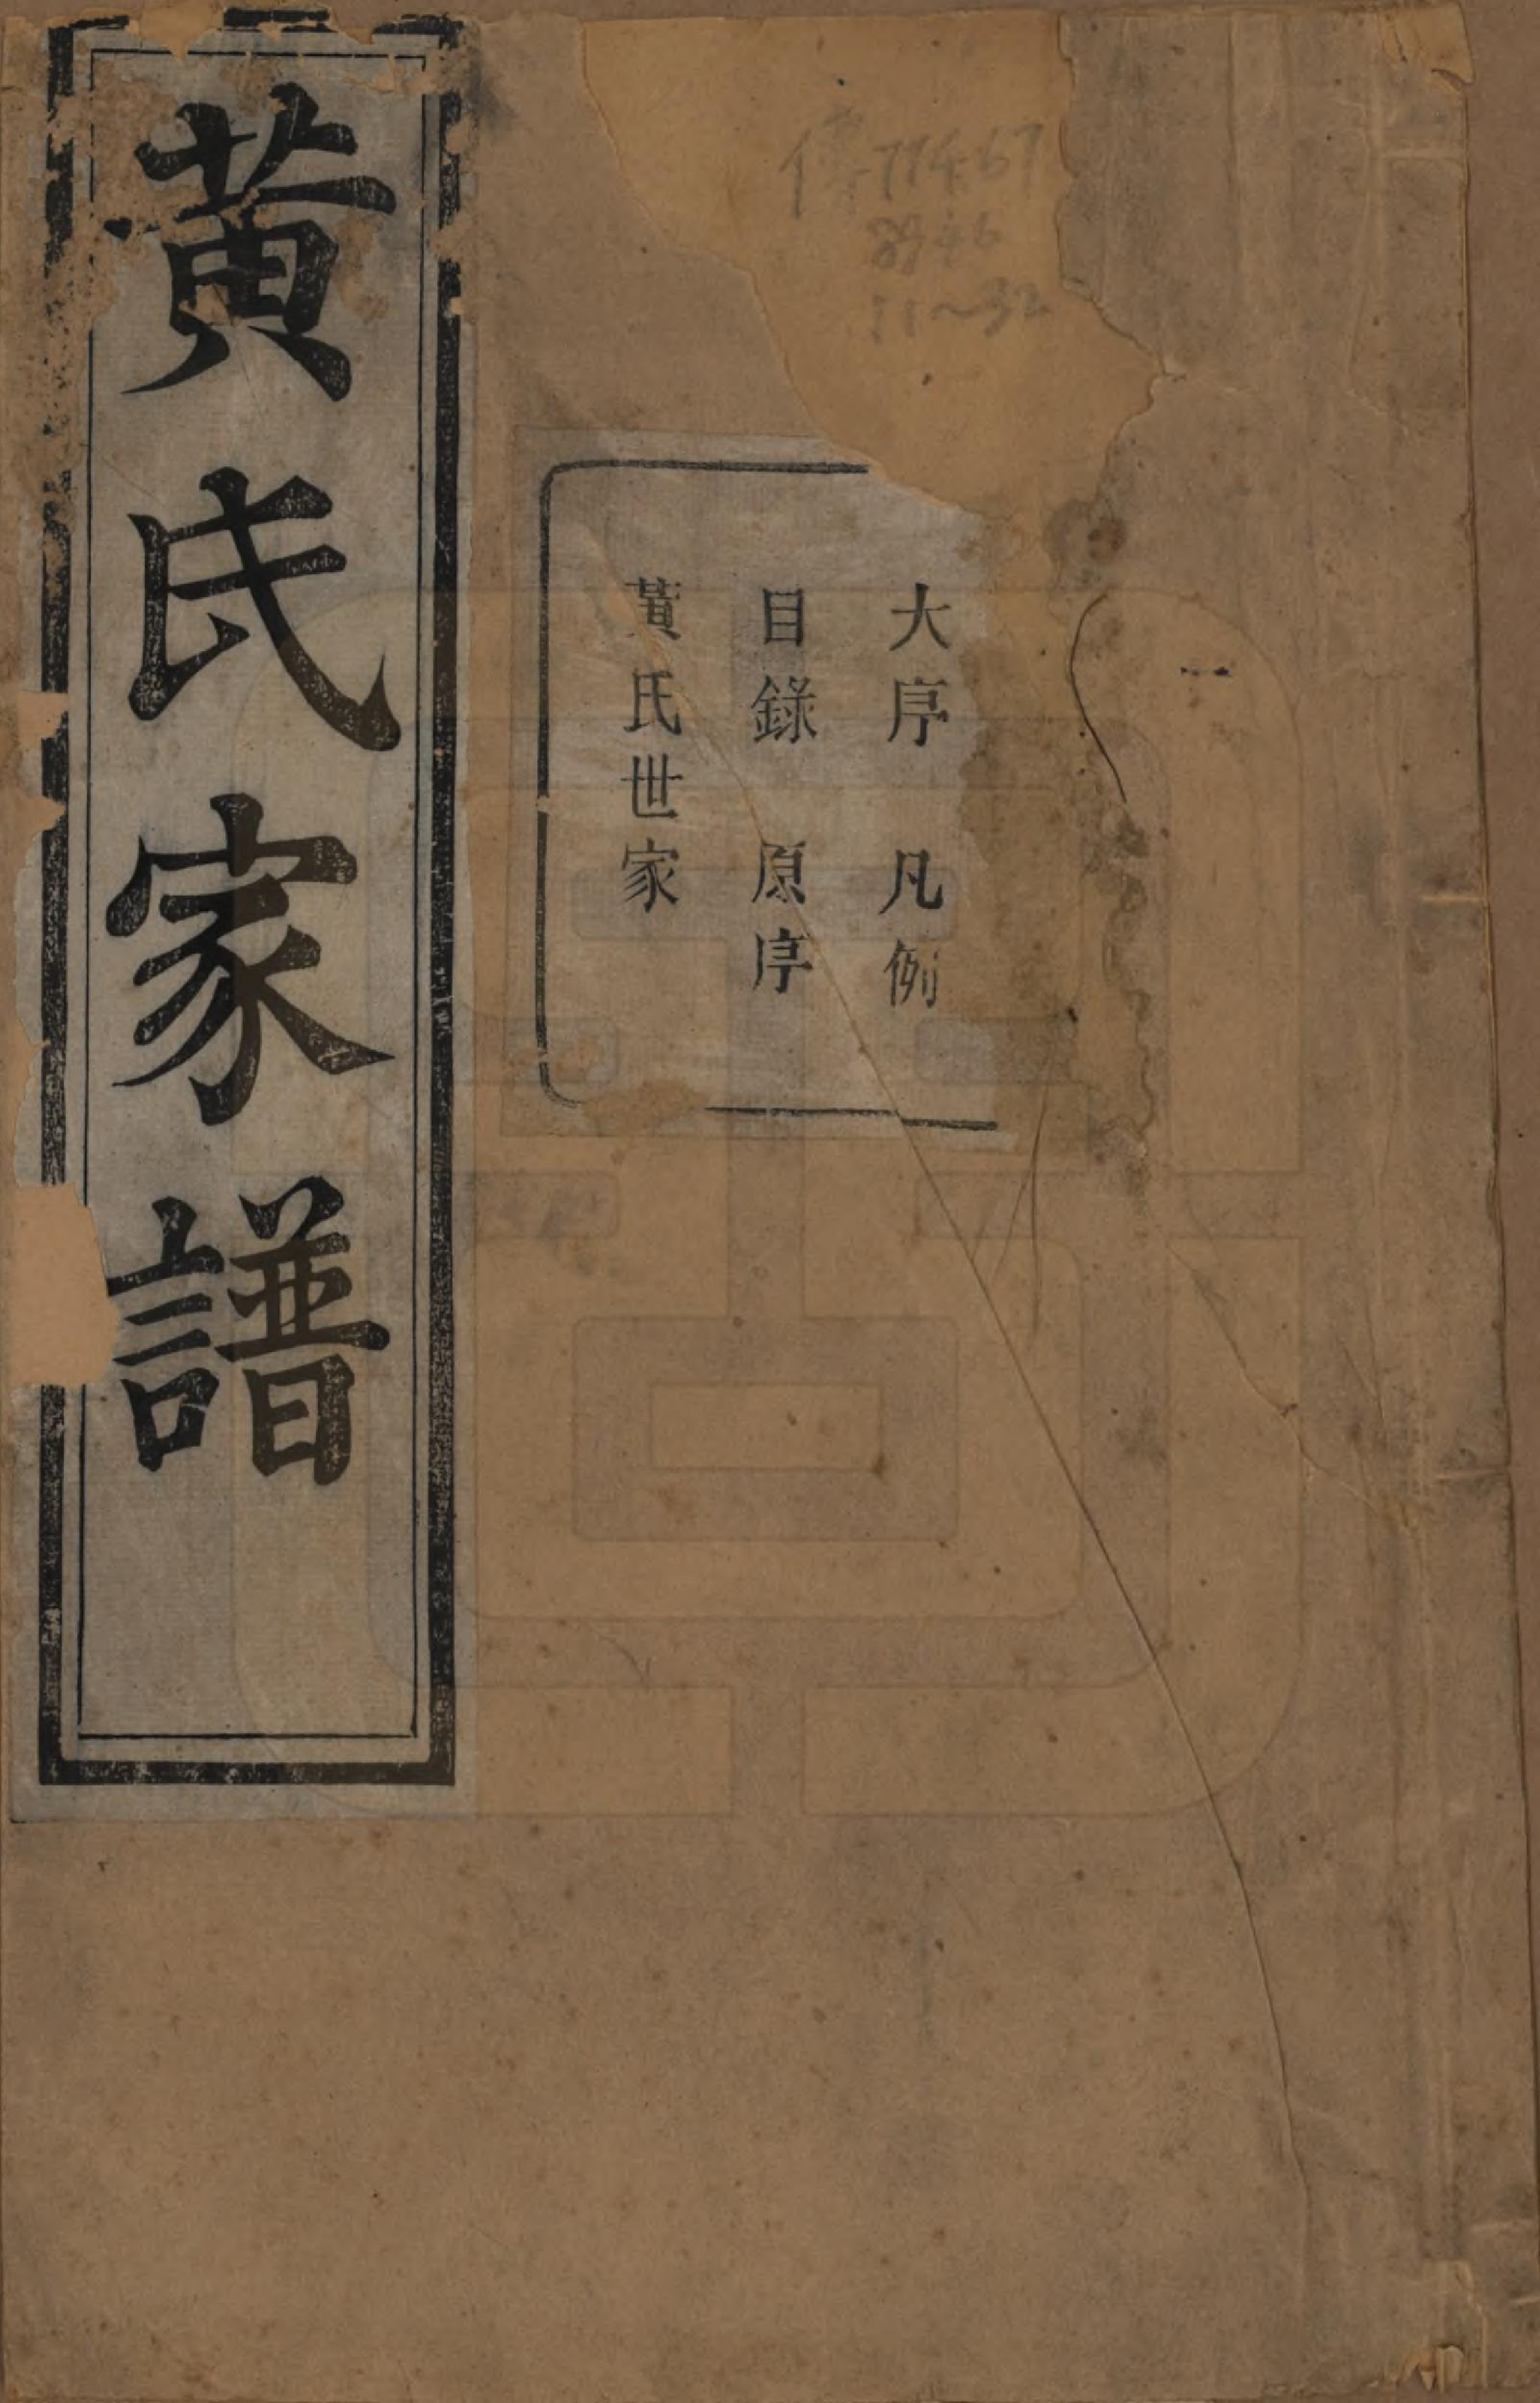 黃氏家譜
大序 凡例
目錄 原序
黃氏世家
傳77467
8946
11～32